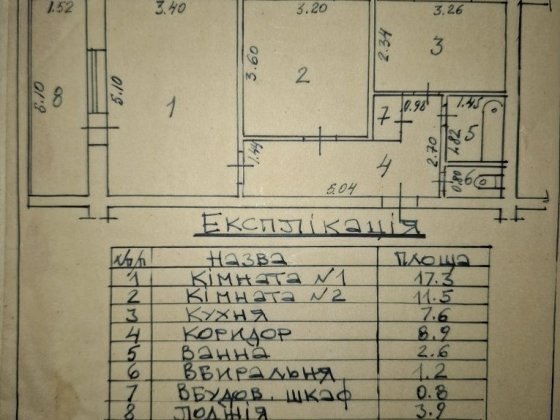 1.52 3.40 3.20 3.26
6.10 8 5.10 1 3.60 2 2.34 3
7 0.98 1.45
1.44 4 2.70 1.82 5
5.04 0.80 6
Експлікація
№п/п Назва Площа
1 Кімната №1 17.3
2 Кімната №2 11.5
3 Кухня 7.6
4 Коридор 8.9
5 Ванна 2.6
6 Вбиральня 1.2
7 Вбудов. шкаф 0.8
8 Лоджія 3.9